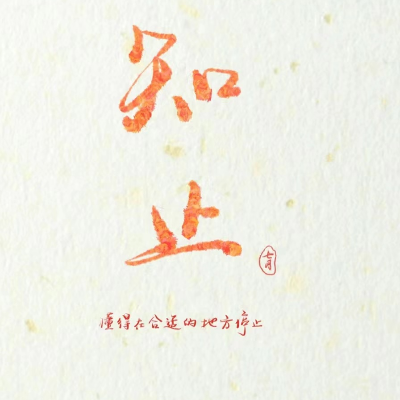 知
止
七月
懂得在合适的地方停止